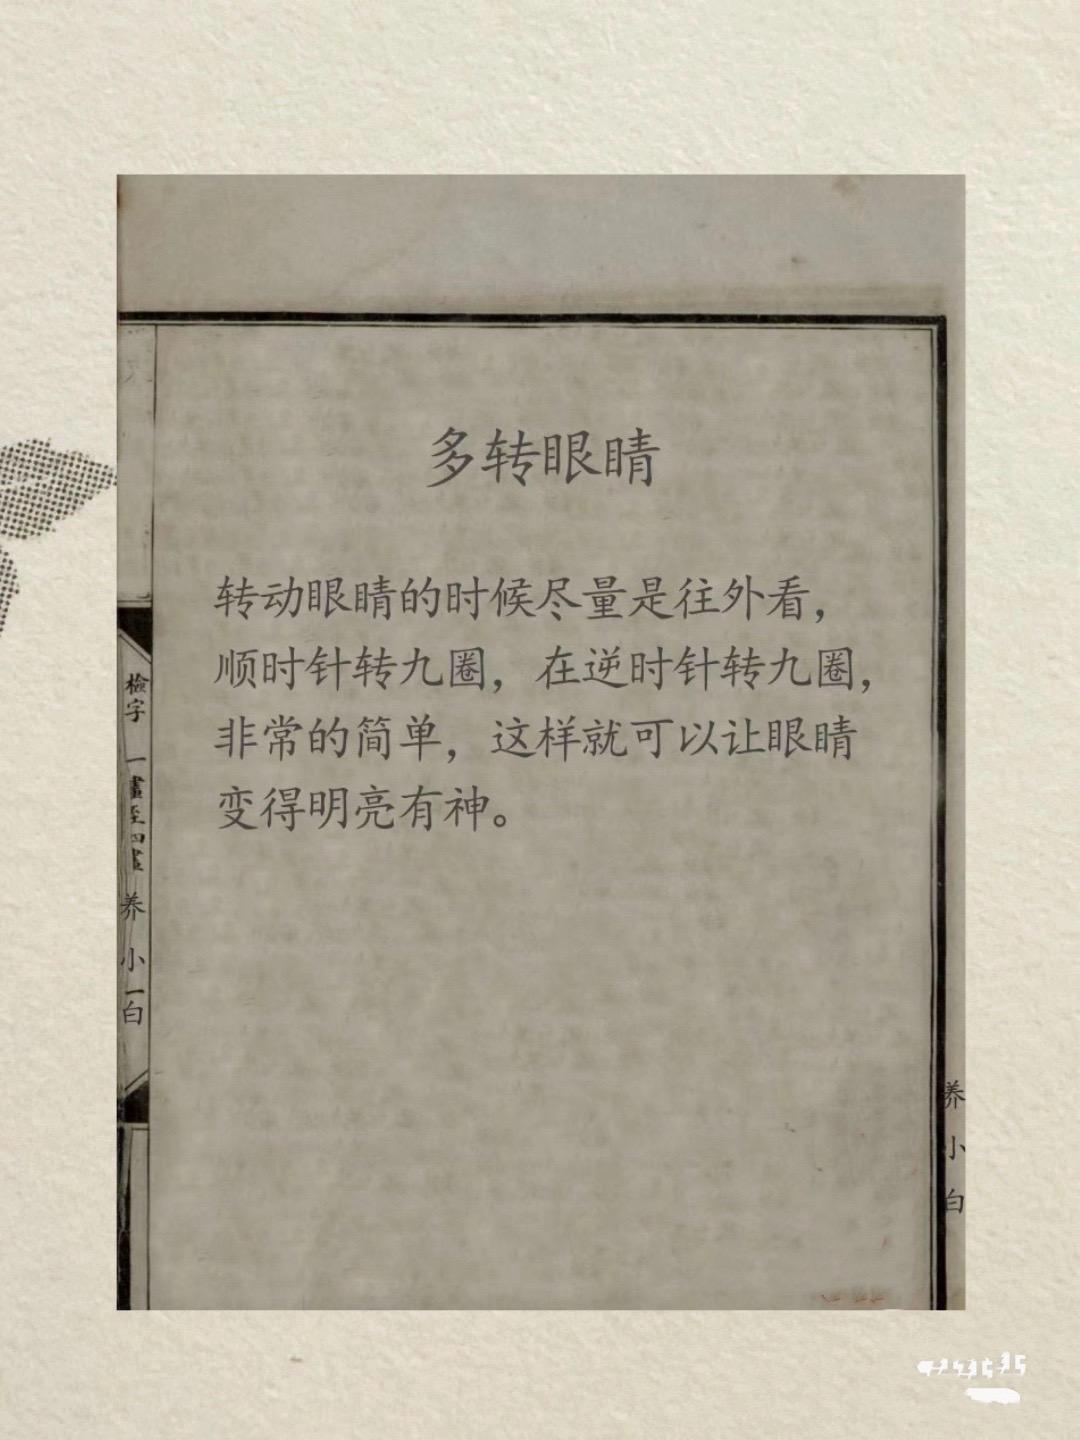 多转眼睛
转动眼睛的时候尽量是往外看，
顺时针转九圈，在逆时针转九圈，
非常的简单，这样就可以让眼睛
变得明亮有神。
檢字
一畫至四畫
养小一白
养小白